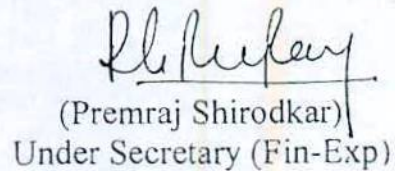 (Premraj Shirodkar)
Under Secretary (Fin-Exp)